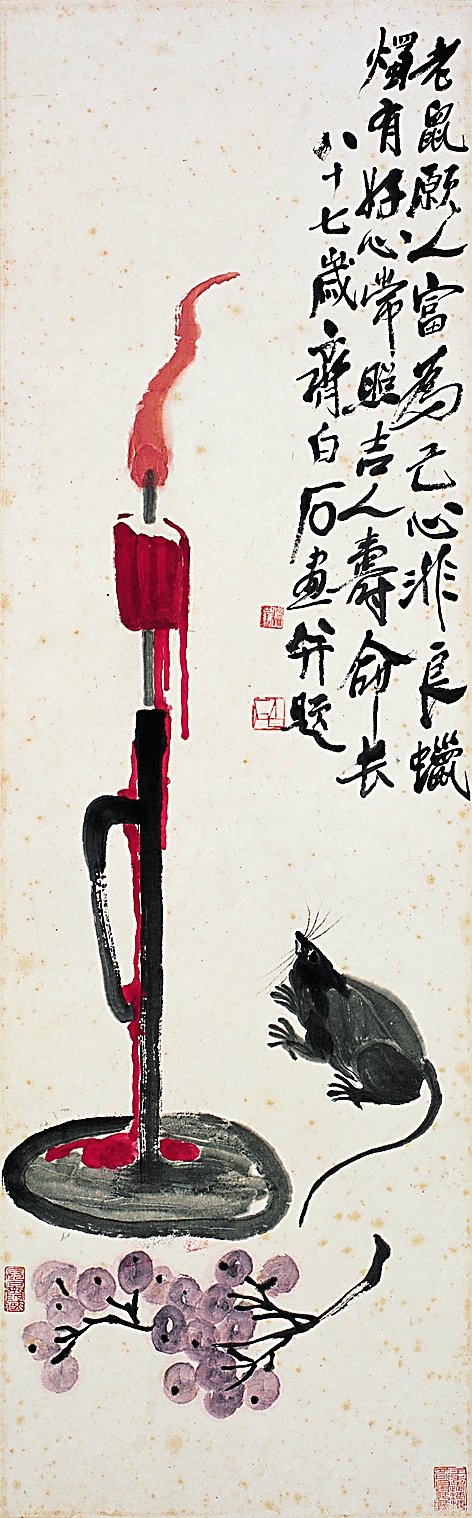 老鼠願人富為己心非良蠟
燭有好心常照吉人壽命長
八十七歲齊白石畫并題